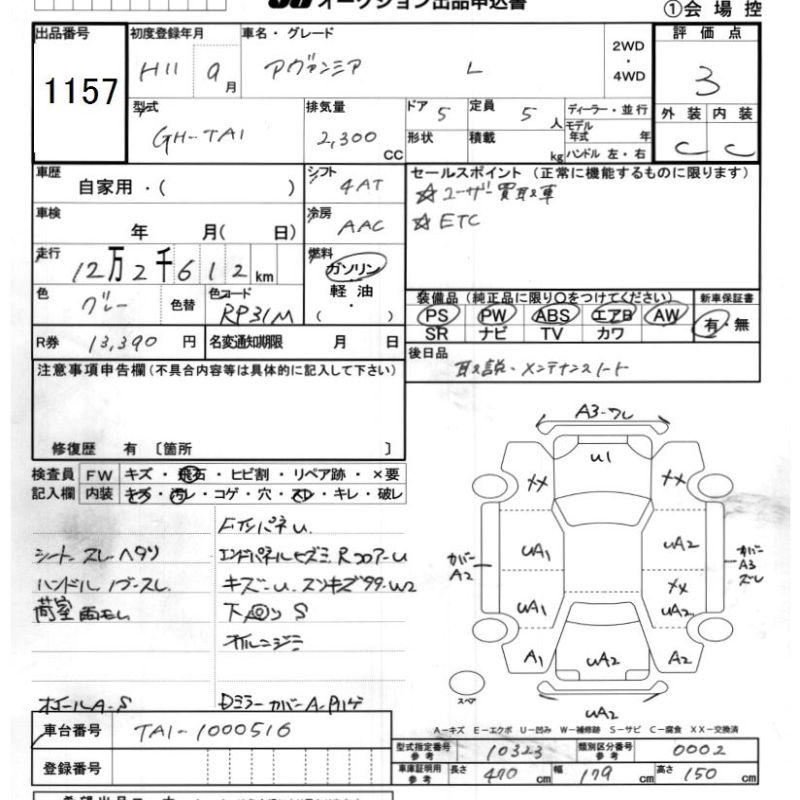 オークション出品申込書
①会場控
出品番号
1157
初度登録年月
H11 9月
車名・グレード
アヴァンシア L
2WD・4WD
評価点
3
型式
GH-TA1
排気量
2,300 CC
ドア 5
定員 5人
形状
積載 kg
ディーラー・並行
モデル年式 年
ハンドル 左・右
外装 内装
C C
車歴
自家用・( )
シフト
4AT
セールスポイント(正常に機能するものに限ります)
☆ユーザー買取車
☆ETC
車検
年 月( 日)
冷房
AAC
走行
12万2千612km
燃料
ガソリン・軽油
( )
色
グレー
色替
色コード
RP31M
装備品(純正品に限り〇をつけてください)
PS PW ABS エアB AW
SR ナビ TV カワ
新車保証書
有・無
R券 13,390円
名変通知期限 月 日
後日品
取説・メンテナンスノート
注意事項申告欄(不具合内容等は具体的に記入して下さい)
修復歴 有 〔箇所 〕
検査員 FW キズ・飛石・ヒビ割・リペア跡・×要
記入欄 内装 キズ・汚レ・コゲ・穴・スレ・キレ・破レ
シート スレ ヘタリ
ハンドル
荷室
S
ホイールA-S
Dミラーカバー A-
A3-ワレ
U1
XX XX
カバーA2
UA1 UA2
カバーA3
XX
UA1 UA2
A1 UA2 A2
スペア
UA2
A-キズ E-エクボ U-凹み W-補修跡 S-サビ C-腐食 XX-交換済
車台番号 TA1-1000516
登録番号
型式指定番号参考 10323
類別区分番号参考 0002
車庫証明用参考 長さ 470cm 幅 179cm 高さ 150cm